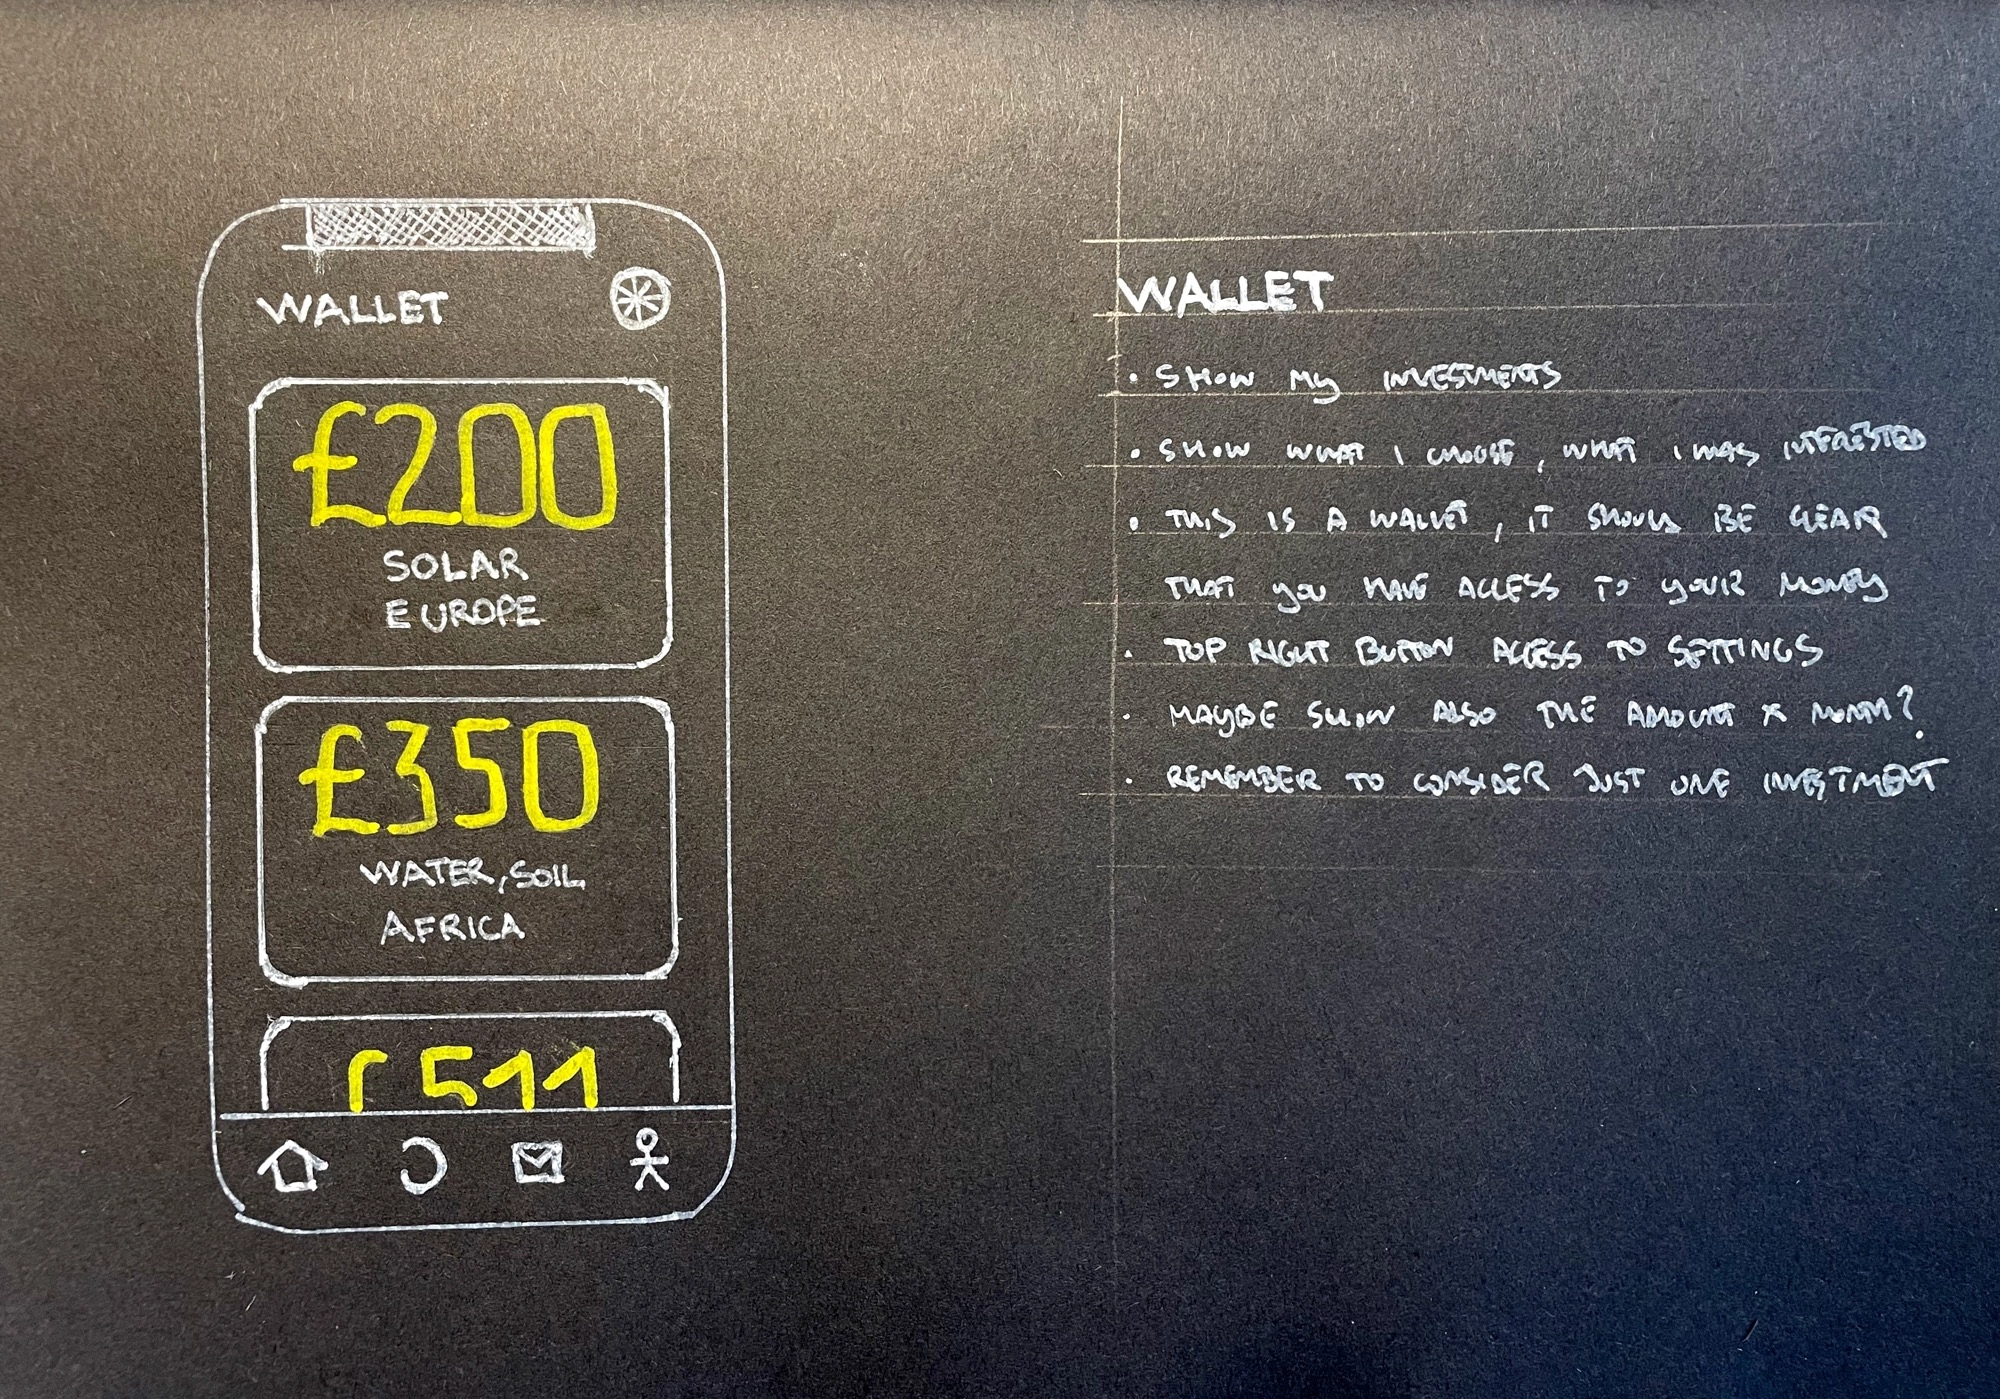 WALLET
£200
SOLAR
EUROPE
£350
WATER, SOIL
AFRICA
£511
WALLET
• SHOW MY INVESTMENTS
• SHOW WHAT I CHOOSE, WHAT I WAS INTERESTED
• THIS IS A WALLET, IT SHOULD BE CLEAR
THAT YOU HAVE ACCESS TO YOUR MONEY
• TOP RIGHT BUTTON ACCESS TO SETTINGS
• MAYBE SHOW ALSO THE AMOUNT X MONTH?
• REMEMBER TO CONSIDER JUST ONE INVESTMENT